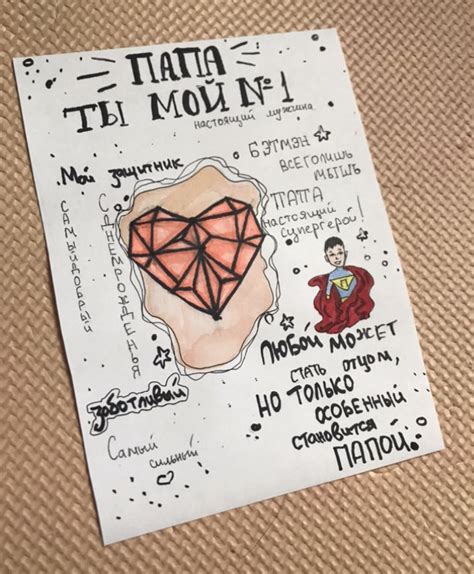 ПАПА
ТЫ МОЙ №1
настоящий мужчина
Мой защитник
БЭТМЭН
ВСЕГОЛИШЬ
МЫШЬ
ПАПА
настоящий
супергерой!
САМЫЙДОБРЫЙ
СДНЕМРОЖДЕНЬЯ
ЛЮБОЙ МОЖЕТ
СТАТЬ ОТЦОМ,
НО ТОЛЬКО
ОСОБЕННЫЙ
СТАНОВИТСЯ
ПАПОЙ.
заботливый
Самый
сильный